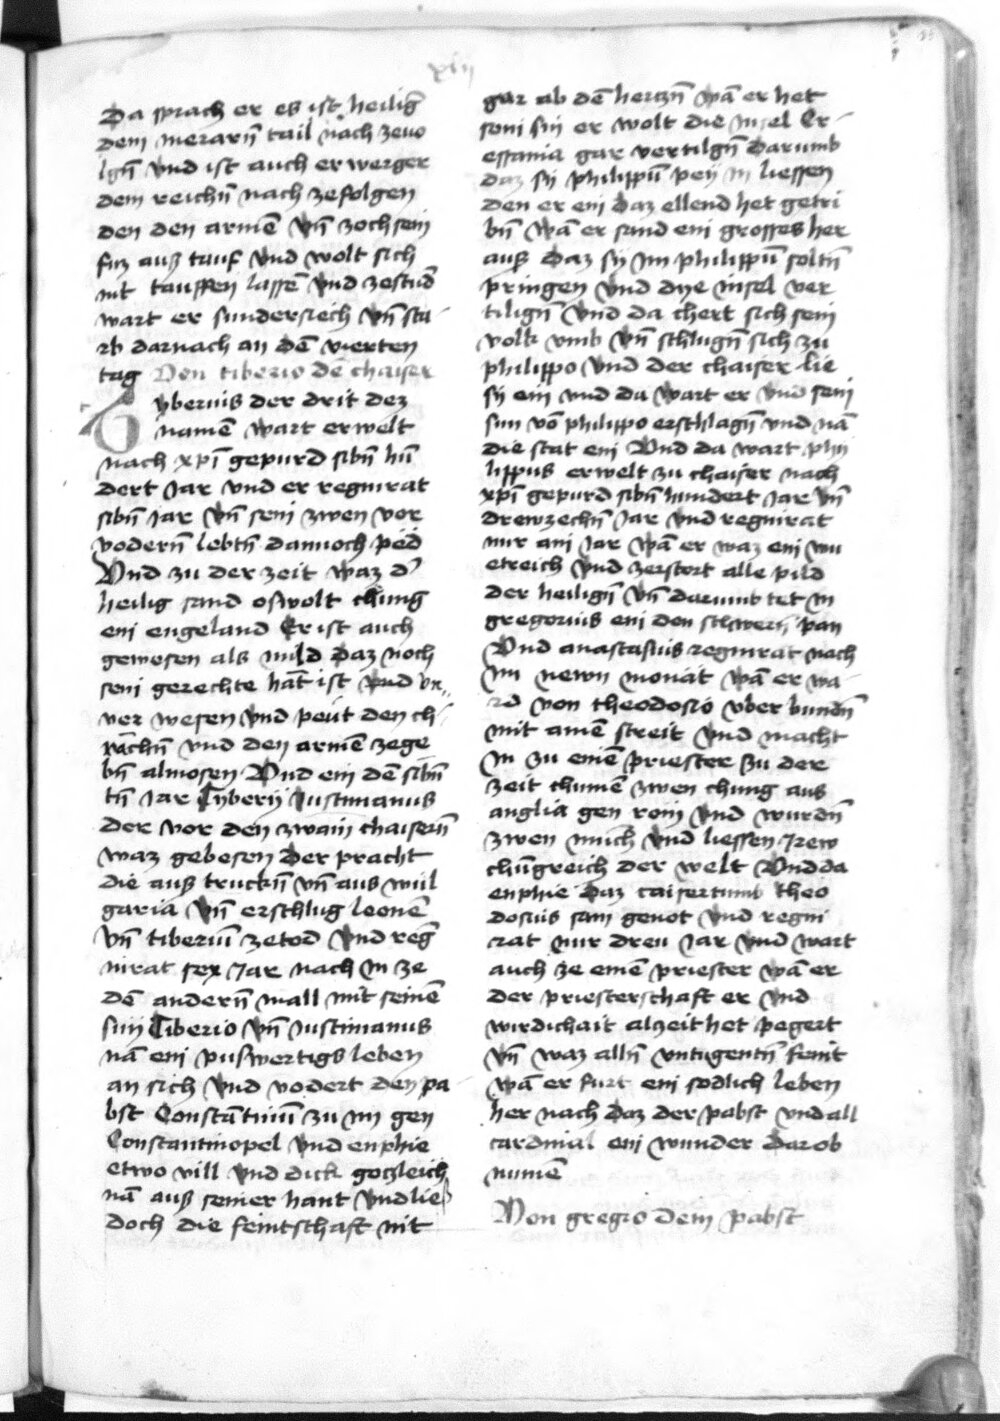 xlij
Da sprach er es ist heilig̅
dem merarn̅ tail nach zeuo
lgn̅ vnd ist auch er werger
dem reichn̅ nach zefolgen
den den armē vn̅ zoch sein
fuz auß tauf vnd wolt sich
nit tauffen lassē vnd zestūd
wart er sundersiech vn̅ sta
rb darnach an dē vierten
tag Von tiberio dē chaiser
Tyberius der drit dez
namē wart erwelt
nach xp̅i gepurd sibn̅ hū
dert Jar vnd er regnirat
sibn̅ Jar vn̅ sein zwen vor
vodern̅ lebtn̅ dannoch ped
Vnd zu der zeit waz d̕
heilig sand oswolt chung
ein engeland Er ist auch
gewesen als mild daz noch
sein gerechte hāt ist vnd vn
ver wesen vnd peut den ch
rāchn̅ vnd den armē zege
bn̅ almosen Vnd ein dē sibn̅
tn̅ Jar Tyberij Justinianus
der vor den zwain chaisern̅
waz gebesen der pracht
die auß truckn̅ vn̅ aus wul
garia vn̅ erschlug leonē
vn̅ tiberiū ze tod vnd reg̅
nirat sex Jar nach in ze
dē andern̅ mall mit seinē
sun Tiberio vn̅ Justinianus
nā ein puswertigs leben
an sich vnd vodert den pa
bst Constātinū zu im gen
Constantinopel vnd enphie
etwo vill vnd dick goczleich
nā auß seiner hant vnd lie
doch die feintschaft nit
gar ab dē herczn̅ wā er het
seni sin er wolt die insel Er
essania gar vertilgn̅ darumb
daz sy philippū pey in liessen
den er ein daz ellend het getri
bn̅ wā er sand ein grosses her
auß daz sy im philippū soltn̅
pringen vnd dye insel ver
tilign̅ vnd da chert sich sein
volk vmb vn̅ schlugn̅ sich zu
philippo vnd der chaiser lie
sy ein vnd da wart er vnd sein
sun vō philippo erschlagn̅ vnd nā
die stat ein Vnd da wart phi
lippus erwelt zu chaiser nach
xp̅i gepurd sibn̅ hundert Jar vn̅
drewzechn̅ Jar vnd regnirat
nur ain Jar wā er waz ein wu
etreich vnd zerstort alle pild
der heilign̅ vn̅ darumb tet in
gregorius ein den schwern̅ pan
Vnd anastasius regnirat nach
im newn monat wā er wa
rd von theodosio vber bundn̅
mit amē streit vnd macht
in zu einē priester Zu der
zeit chumē zwen chung aus
anglia gen rom vnd wurdn̅
zwen munich vnd liessen Jrew
chūgreich der welt Vnd da
enphie daz caisertumb theo
dosius sam genot vnd regni
rat nur dreu Jar vnd wart
auch ze einē priester wā er
der priesterschaft er vnd
wirdichait alczeit het pegert
vn̅ waz alln̅ vntugentn̅ feint
wā er furt ein sodlich leben
her nach daz der pabst vnd all
cardinal ein wunder darob
numē
Von gregrio dem pabst